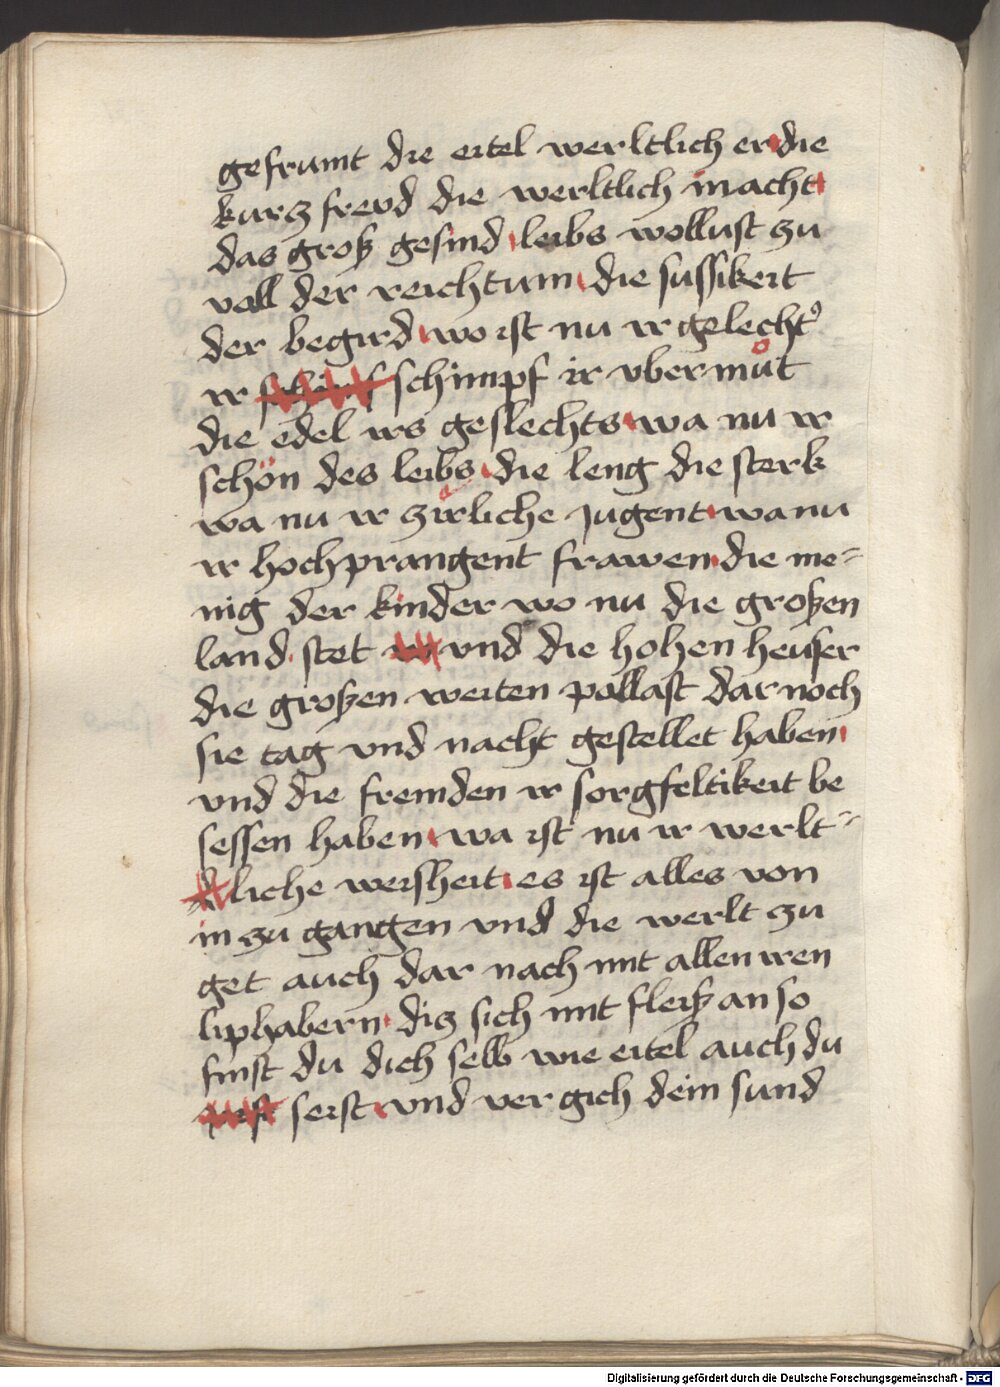 gefrumt die eitel werltlich er die
kurz freud die werltlich macht
das groß gesind leibs wollust zu
voll der reichtum die sussikeit
der begird wo ist nu ir gelecht9
ir schimpf ir vbermůt
die edel irs geslechts wa nu ir
schön des leibs die leng die sterk
wa nu ir zirliche jugent wa nu
ir hochprangent frawen die me-
nig der kinder wo nu die großen
land stet vnd die hohen heuser
die großen weiten pallast dar noch
sie tag vnd nacht gestellet haben
vnd die fremden ir sorgfeltikeit be
sessen haben wa ist nu ir werlt-
liche weisheit es ist alles von
in zu gangen vnd die werlt zu
get auch dar nach mit allen iren
liphabern diz sich mit fleiß an so
finst du dich selb wie eitel auch du
seist vnd ver gich dein sund
Digitalisierung gefördert durch die Deutsche Forschungsgemeinschaft - DFG